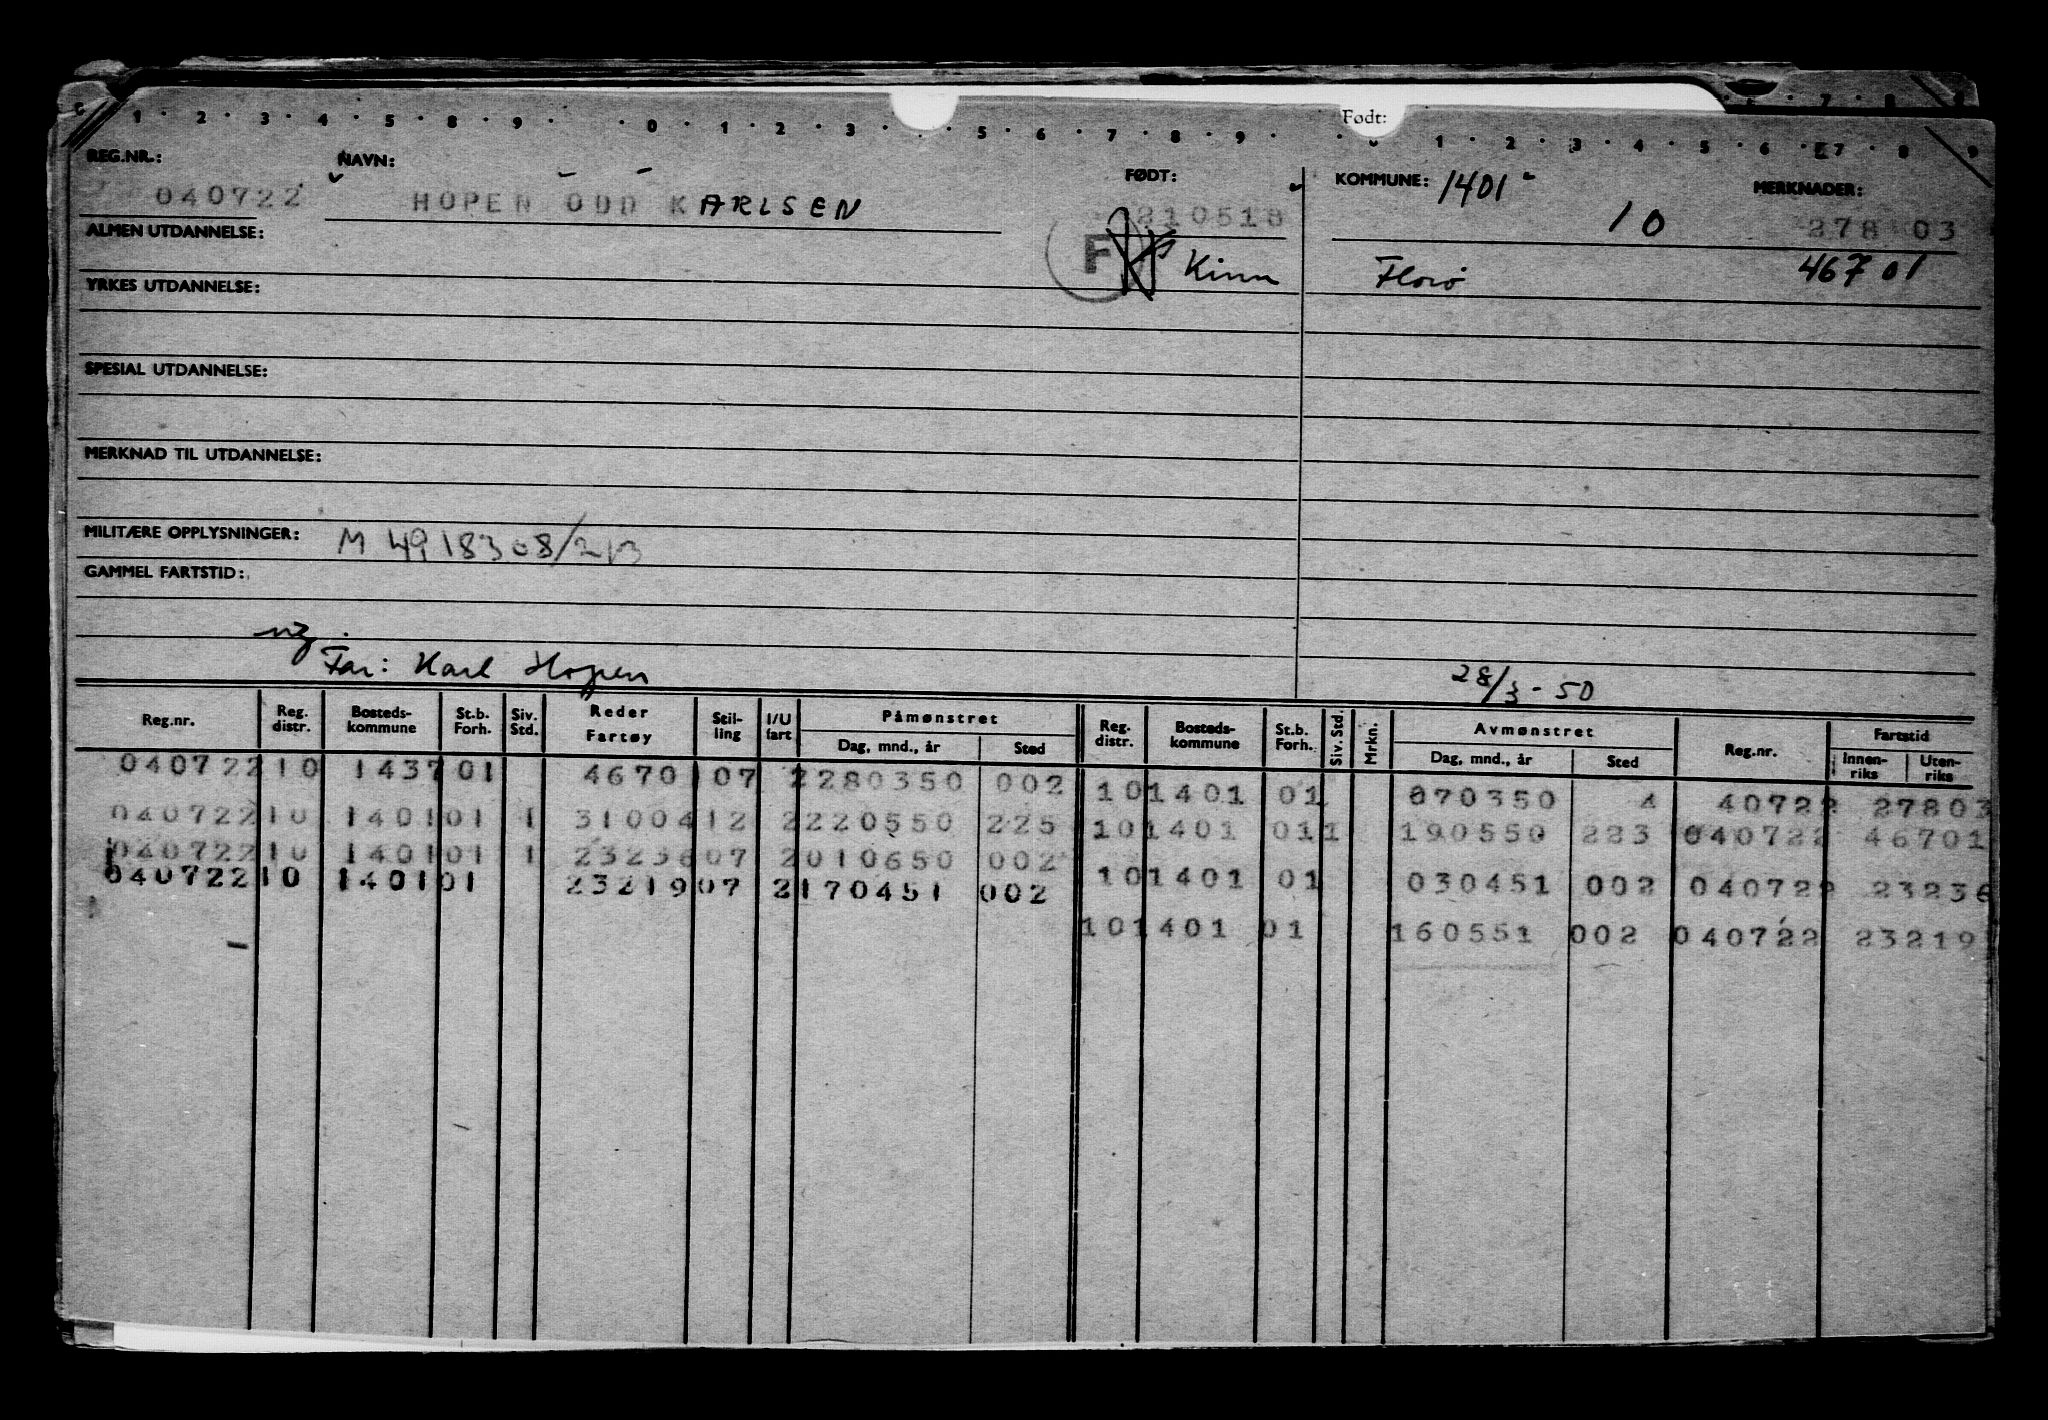 Født:
C 1 · 2 · 3 · 4 · 5 · 8 · 9 · 0 · 1 · 2 · 3 · 5 · 6 · 7 · 8 · 9 · 1 · 2 · 3 · 4 · 5 · 6 · 7 · 8 · 9
REG.NR.: NAVN: FØDT: KOMMUNE: 1401 MERKNADER:
040722 HOPEN ODD KARLSEN 210518 10 278 03
ALMEN UTDANNELSE: F Kinn Florø 467 01
YRKES UTDANNELSE:
SPESIAL UTDANNELSE:
MERKNAD TIL UTDANNELSE:
MILITÆRE OPPLYSNINGER: M 4918308/213
GAMMEL FARTSTID:
Far: Karl Hopen 28/3-50
Reg.nr. Reg. distr. Bosteds-kommune St.b. Forh. Siv. Std. Reder Fartøy Stil-ling I/U fart Påmønstret Dag, mnd., år Sted Reg. distr. Bosteds-kommune St.b. Forh. Siv. Std. Mrkn. Avmønstret Dag, mnd., år Sted Reg.nr. Fartstid Innen-riks Uten-riks
040722 10 1437 01 46701 07 2 280350 002 10 1401 01 070350 4 40722 27803
040722 10 1401 01 1 31004 12 2 220550 225 10 1401 01 1 190550 223 040722 46701
040722 10 1401 01 1 23236 07 2 010650 002 10 1401 01 030451 002 040722 23236
040722 10 1401 01 23219 07 2 170451 002 10 1401 01 160551 002 040722 23219